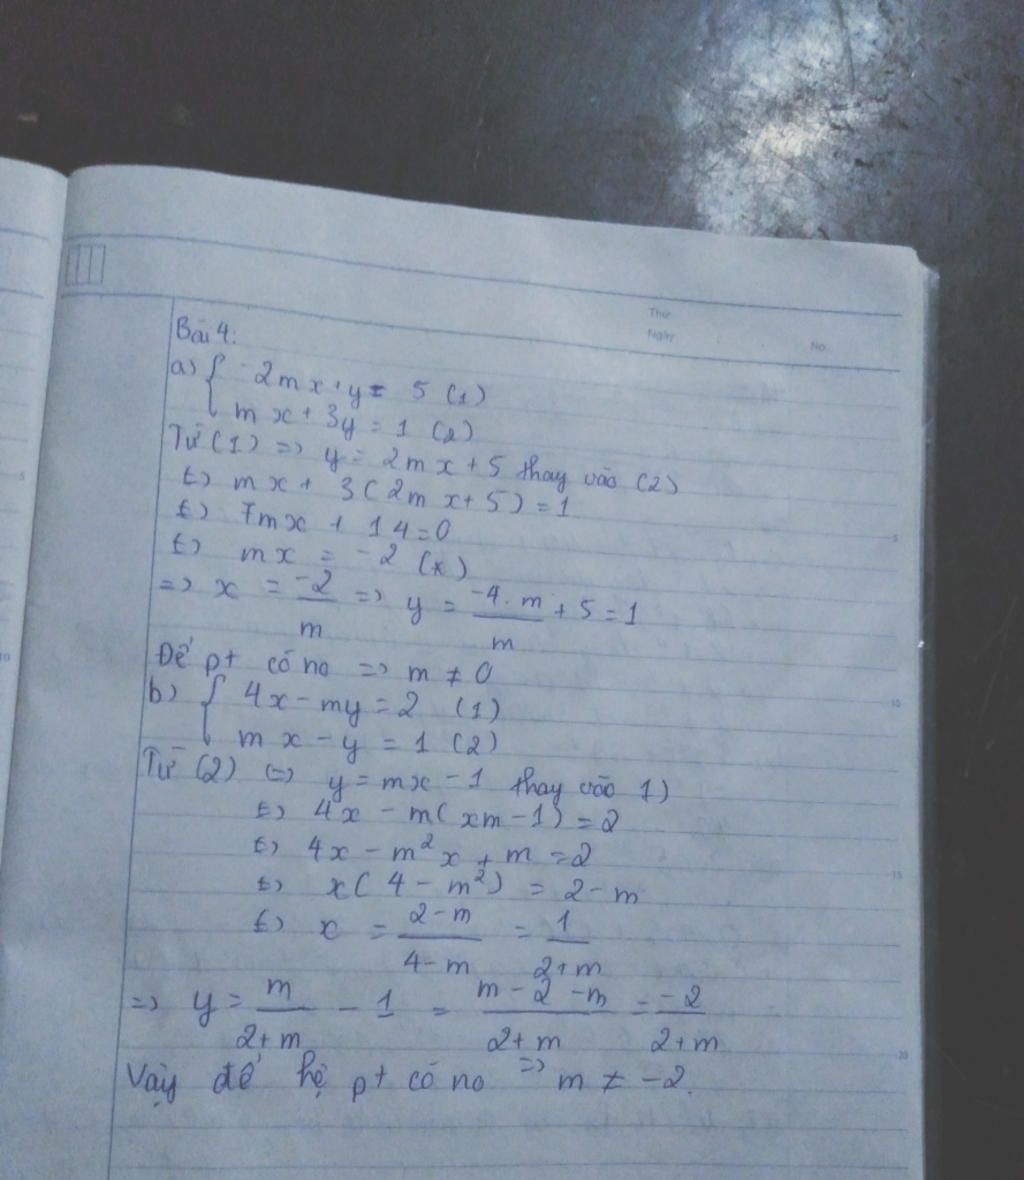 Thứ
Ngày
No.
Bài 4:
a) { -2mx+y = 5 (1)
mx + 3y = 1 (2)
Từ (1) => y = 2mx + 5 thay vào (2)
<=> mx + 3(2mx+5) = 1
<=> 7mx + 14 = 0
<=> mx = -2 (*)
=> x = -2/m => y = -4.m/m + 5 = 1
Để pt có no => m ≠ 0
b) { 4x - my = 2 (1)
mx - y = 1 (2)
Từ (2) <=> y = mx - 1 thay vào 1)
<=> 4x - m(xm - 1) = 2
<=> 4x - m²x + m = 2
<=> x(4 - m²) = 2 - m
<=> x = 2-m/4-m = 1/2+m
=> y = m/2+m - 1 = m-2-m/2+m = -2/2+m
Vậy để hệ pt có no => m ≠ -2.
5
10
15
20
5
10